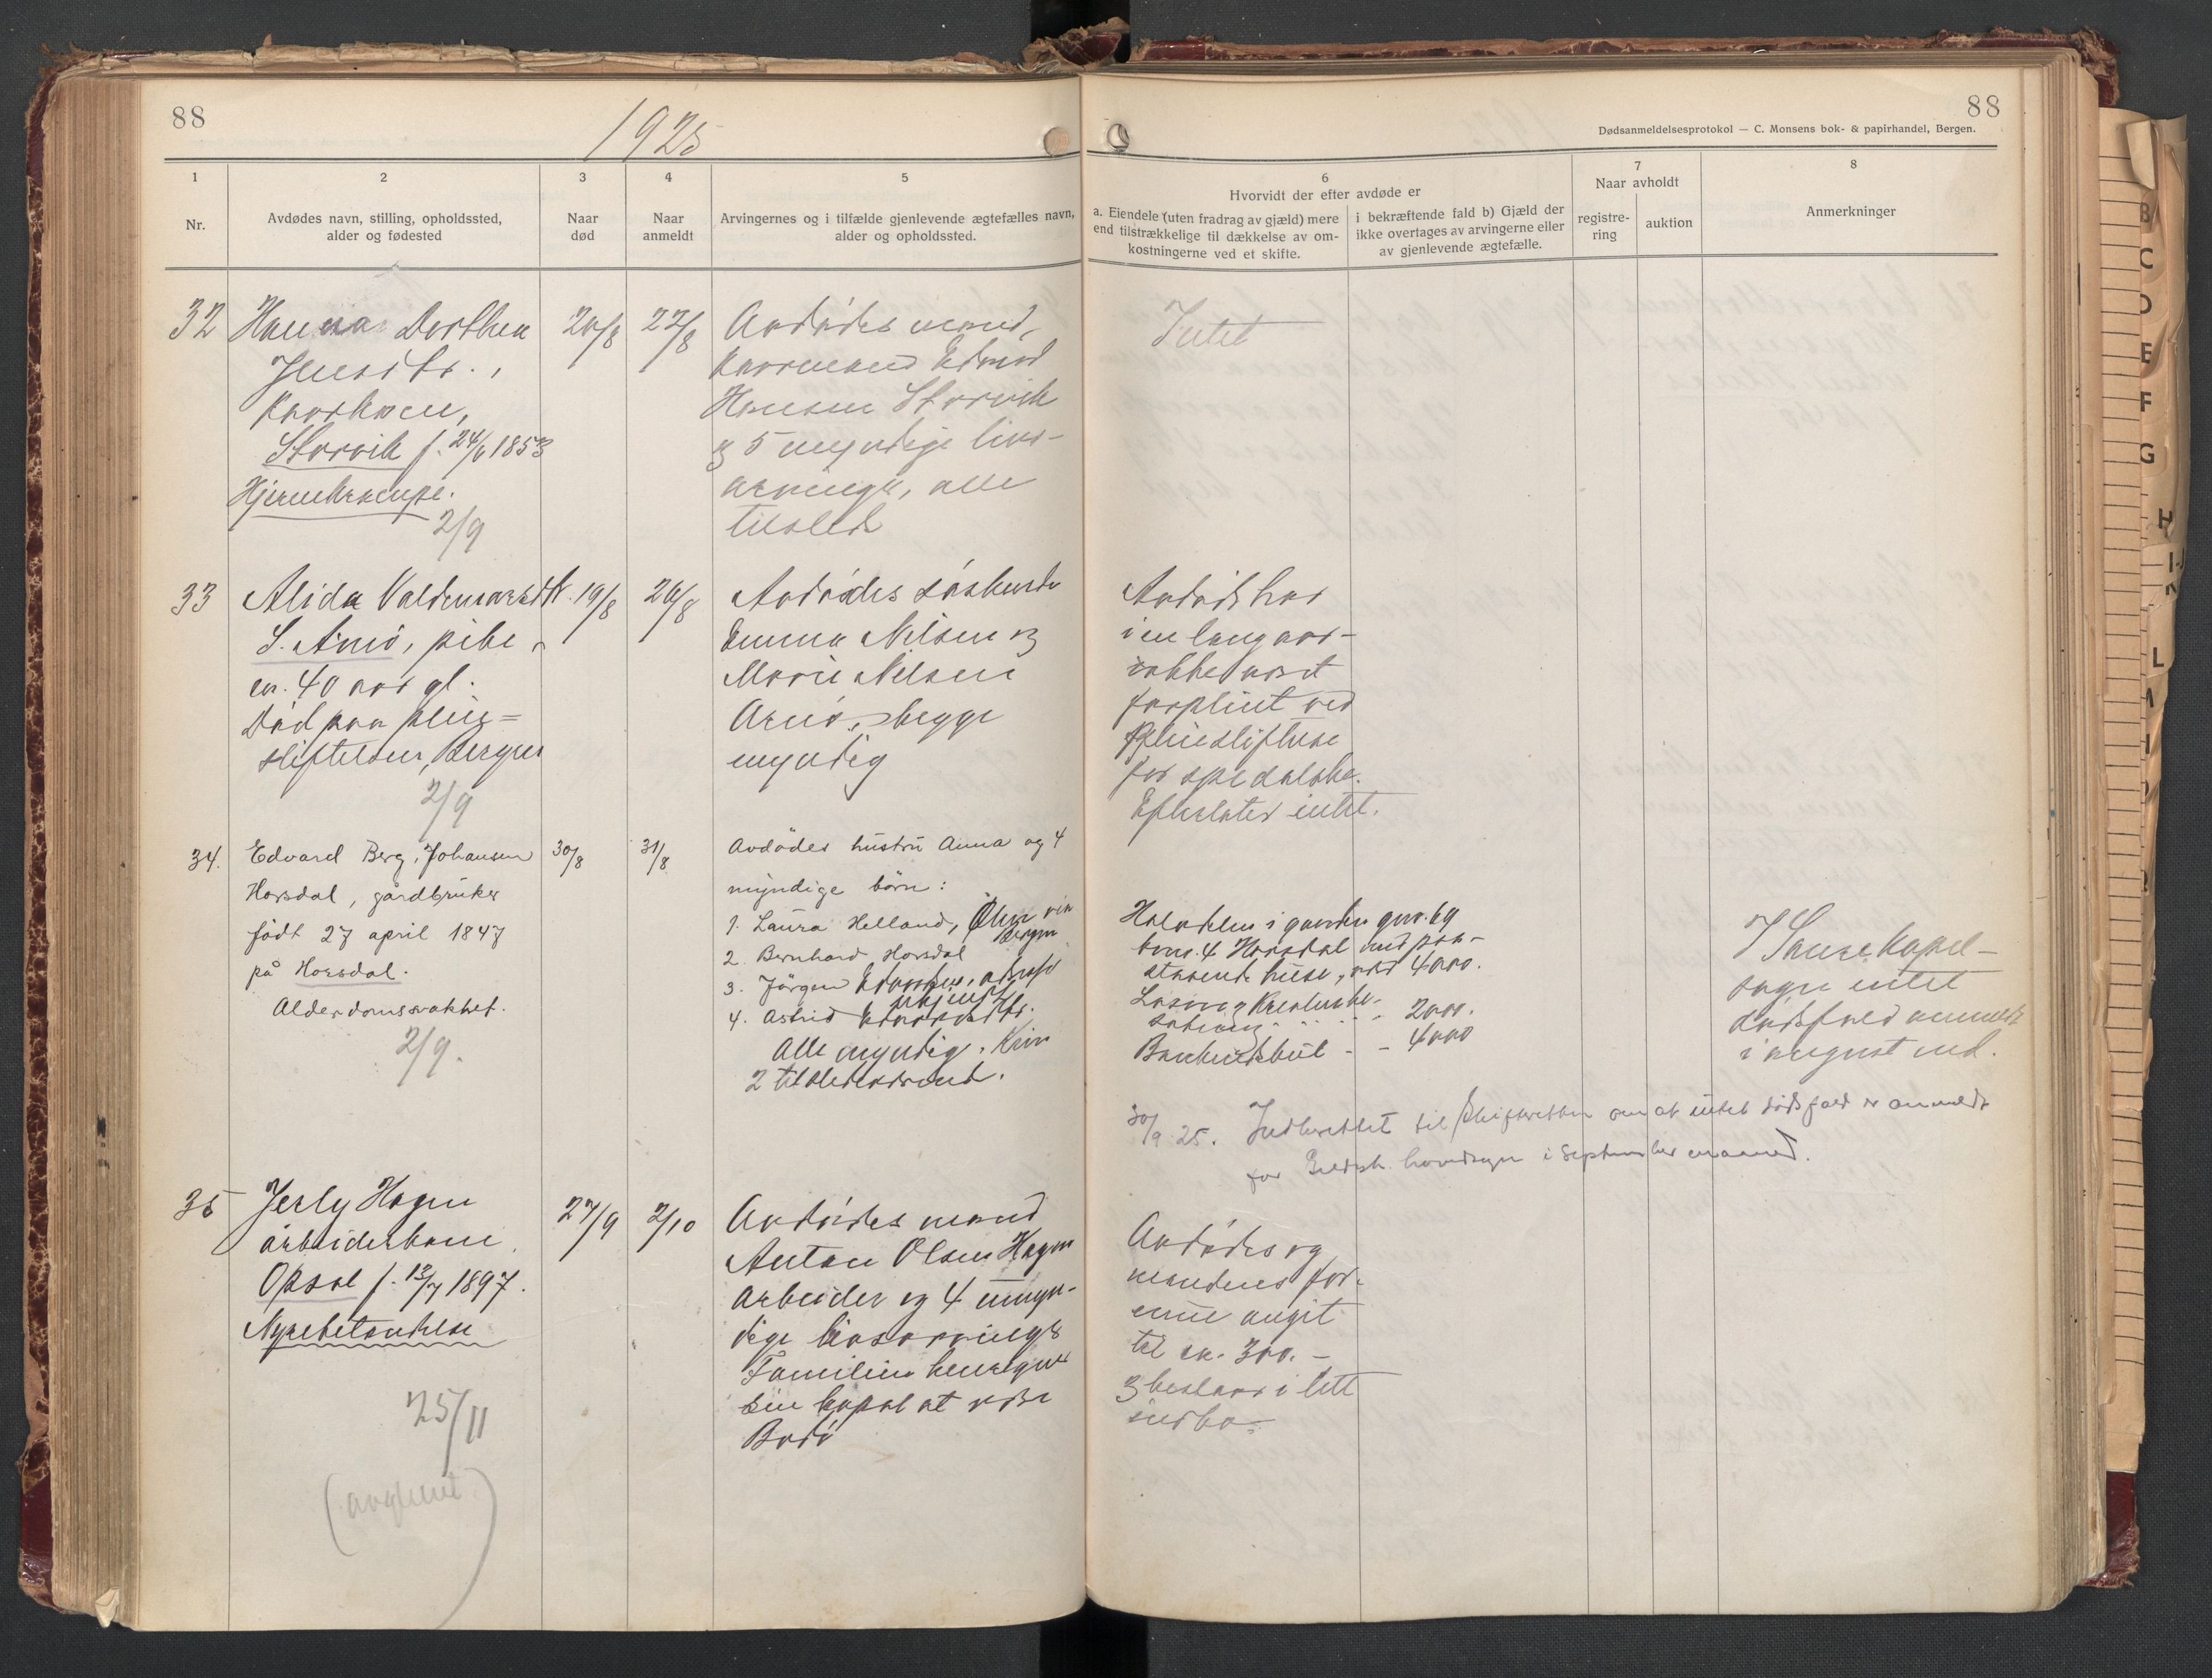 88
1925
88
Dødsanmeldelsesprotokol — C. Monsens bok- & papirhandel, Bergen.
1
2
3
4
5
6
7
8
Nr.
Avdødes navn, stilling, opholdssted,
alder og fødested
Naar
død
Naar
anmeldt
Arvingernes og i tilfælde gjenlevende ægtefælles navn,
alder og opholdssted.
Hvorvidt der efter avdøde er
a. Eiendele (uten fradrag av gjæld) mere
end tilstrækkelige til dækkelse av om-
kostningerne ved et skifte.
i bekræftende fald b) Gjæld der
ikke overtages av arvingerne eller
av gjenlevende ægtefælle.
Naar avholdt
registre-
ring
auktion
Anmerkninger
32
Hanna Dorthea
Jensdtr.,
kaarkone,
Storvik f. 24/6 1853
Hjernekrampe.
2/9
20/8
22/8
Avdødes mand,
kaarmand Edvard
Hansen Storvik
og 5 myndige livs-
arvinger, alle
tilstede
Intet
33
Alida Valdemarsdtr.
S. Arnö, pike
ca. 40 aar gl.
Död paa pleie-
stiftelsen, Bergen
2/9
19/8
26/8
Avdødes søskende
Emma Nilsen og
Marie Nilsen
Arnö, begge
myndig
Avdøde har
i en lang aar-
række været
forpleiet ved
Pleiestiftelse
for spedalske.
Efterlater intet.
34.
Edvard Berg Johansen
Horsdal, gårdbruker
född 27 april 1847
på Horsdal.
Alderdomssvakhet.
2/9.
30/8
31/8
Avdödes hustru Anna og 4
myndige börn:
1. Laura Helland, Olsvik
Bergen
2. Bernhard Horsdal
3. Jörgen
4. Astrid Edvardsdtr.
Alle myndig. Kun
2 tilstede
Halvdelen i gaarden gnr. 69
bnr. 4 Horsdal med paa-
staaende huse, værd 4000.
Løsøre og Kreaturbe-
sætning - 2000.
Bankindskud - - 4000
I Saura kapel-
sogn intet
dødsfald anmeldt
i august md.
30/9 25. Indberettet til Skifteretten om at intet dödsfald er anmeldt
for Gildesk. hovedsogn i September maaned.
35
Jerly Hagen
arbeiderkone
Opsal f. 13/7 1897.
Nyrebetændelse
25/11
27/9
2/10
Avdødes mand
Anton Olsen Hagen
arbeider og 4 umyn-
dige livsarvinger
Familien
sin bopæl at være
Bodö
Avdødes og
mandens for-
mue angit
til ca. 300.-
og bestaar i litt
indbo.
B
C
D
E
F
G
H
I-J
K
L